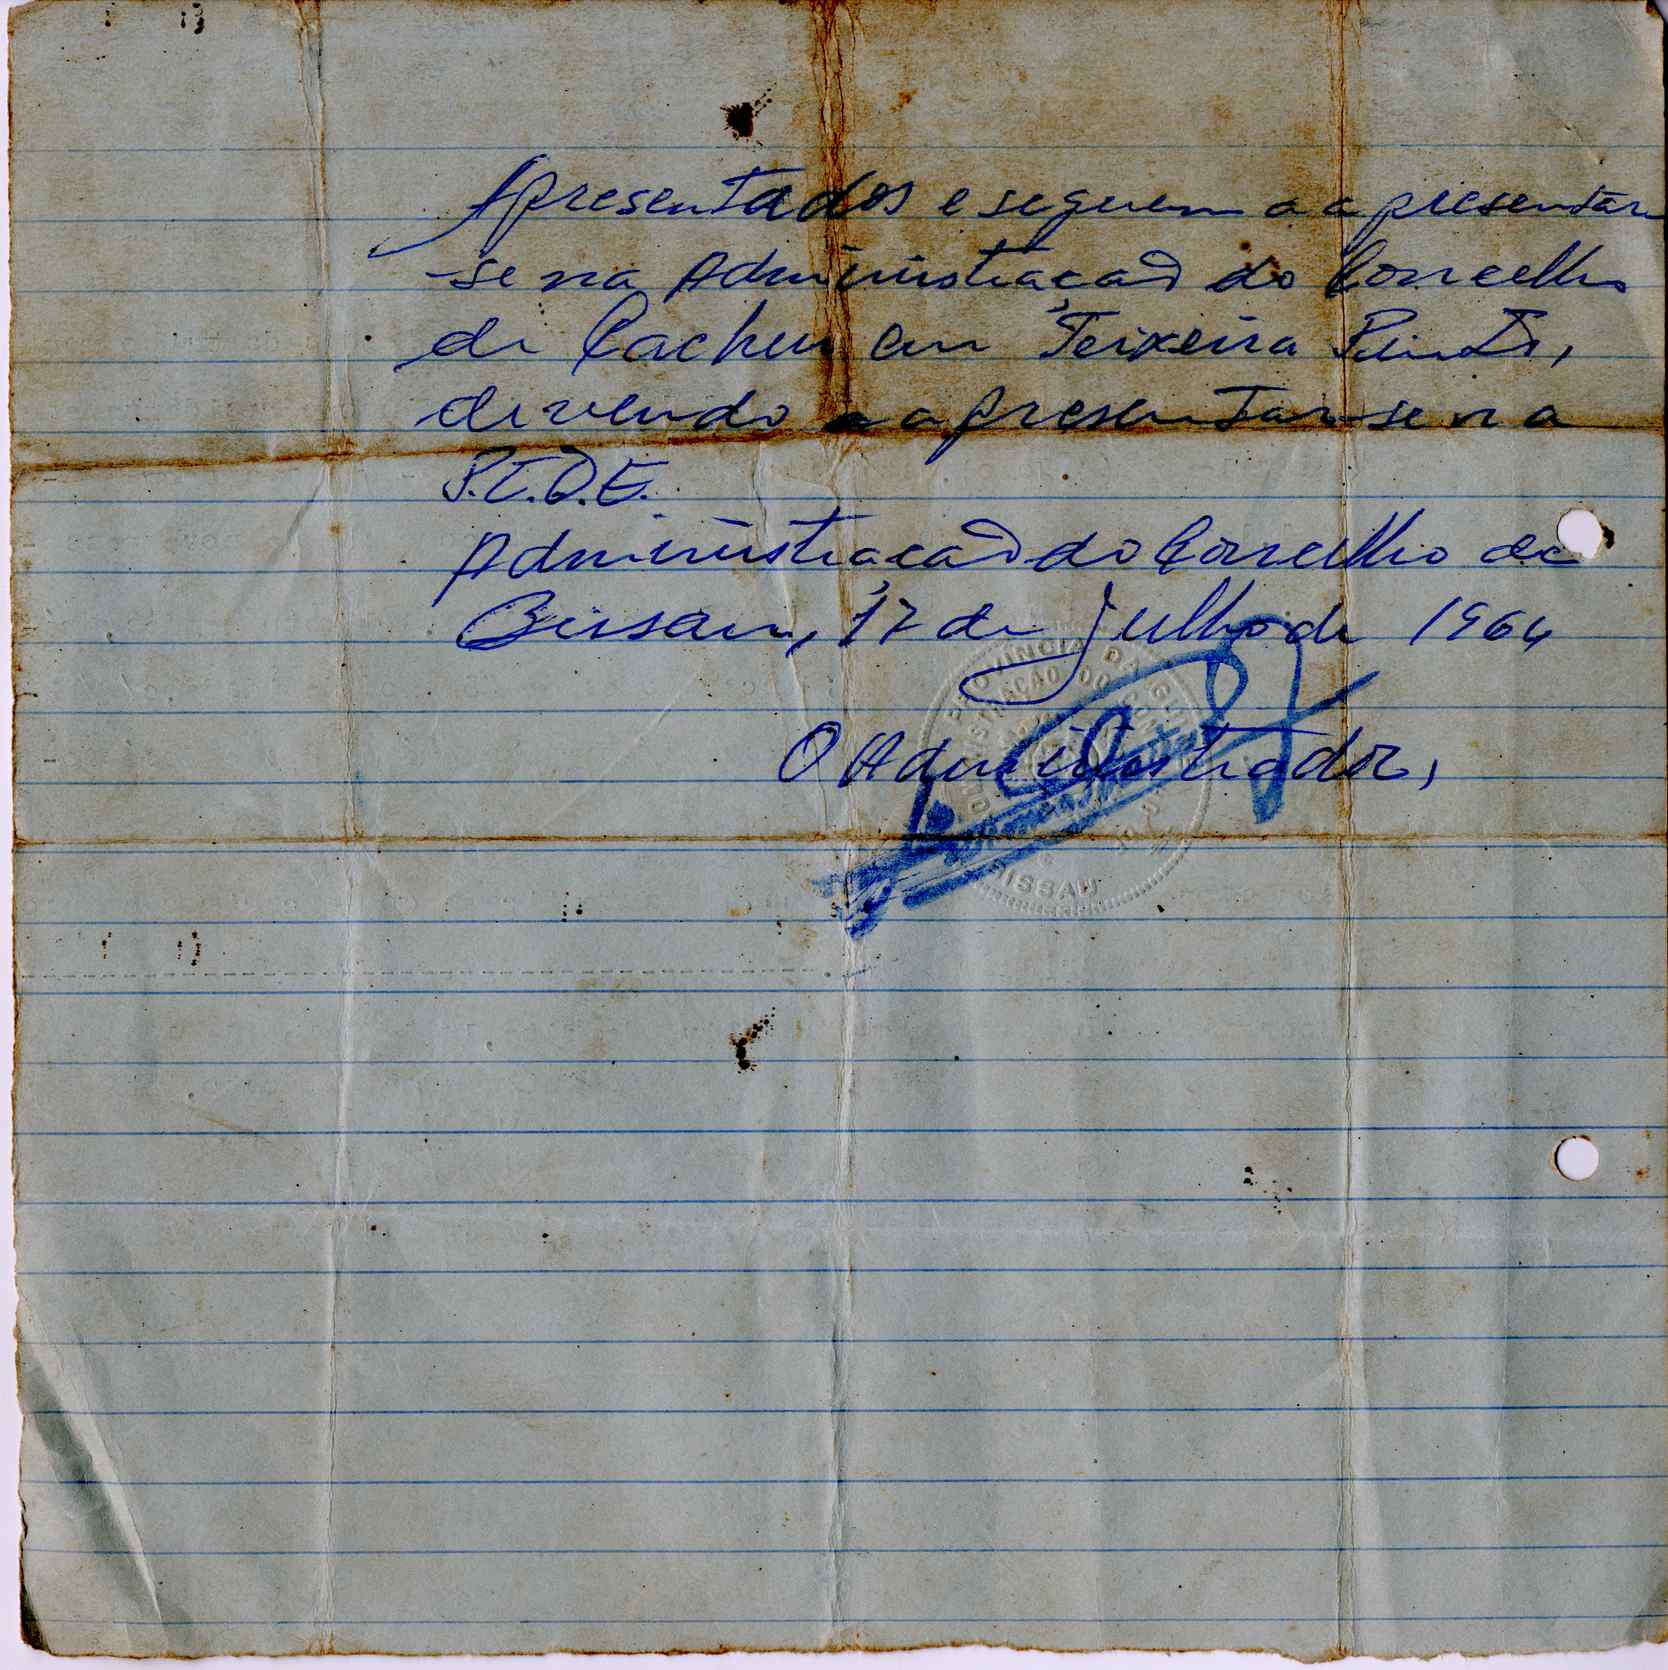 Apresentados e seguem a apresentar
-se na Administração do Concelho
de Cacheu em Teixeira Pinto,
devendo apresentar-se na
P.I.D.E.
Administração do Concelho de
Bissau, 17 de Julho de 1964
O Administrador,
PROVINCIA DA GUI
ADMINISTRAÇÃO DO CON
BISSAU